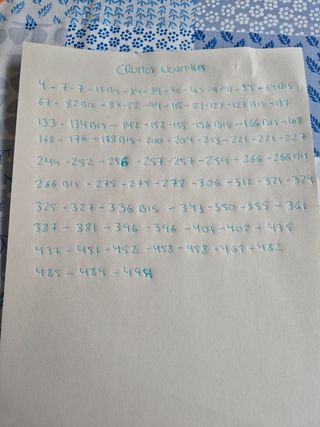 CROMOS NOVEMBRE
4 - 7 - 7 - 19 BIS - 34 - 39 - 40 - 40 - 41 - 41 - 59 - 64 BIS
67 - 82 BIS - 87 - 88 - 94 - 115 - 123 - 123 - 123 BIS - 132
133 - 134 BIS - 142 - 152 - 155 - 156 BIS - 166 BIS - 168
168 - 176 - 188 BIS - 200 - 204 - 213 - 221 - 221 - 227
244 - 252 - 256 - 257 - 257 - 259 - 266 - 266 BIS
266 BIS - 275 - 275 - 278 - 306 - 312 - 321 - 324
325 - 327 - 336 BIS - 343 - 350 - 355 - 361
387 - 381 - 396 - 396 - 401 - 402 - 435
437 - 451 - 452 - 458 - 458 - 465 - 482
485 - 489 - 491